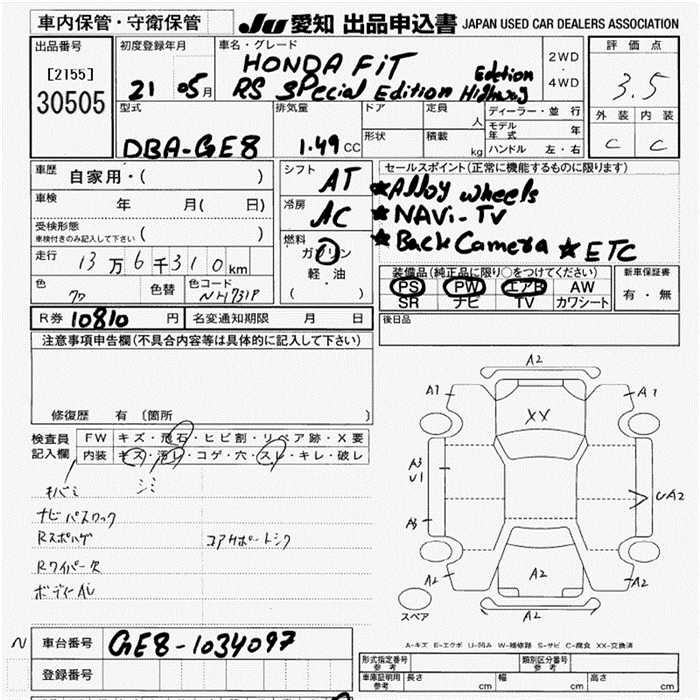 車内保管・守衛保管
JU 愛知 出品申込書 JAPAN USED CAR DEALERS ASSOCIATION
出品番号
[2155]
30505
初度登録年月
21 05月
車名・グレード
HONDA FiT
RS SPecial Edition Highway Edetion
2WD
・
4WD
評価点
3.5
外装 内装
C C
型式
DBA-GE8
排気量
1.49CC
ドア
定員
人
形状
積載
kg
ディーラー・並行
モデル年式 年
ハンドル 左・右
車歴
自家用・( )
車検
年 月( 日)
受検形態
車検付きのみ記入して下さい ( )
走行
13万6千310km
色
色替
色コード
NH731P
シフト
AT
冷房
AC
燃料
ガソリン
軽・油
( )
セールスポイント(正常に機能するものに限ります)
★Alloy wheels
★NAVi-TV
★Back Camera ★ETC
装備品(純正品に限り○をつけてください)
PS PW エアB AW
SR ナビ TV カワシート
新車保証書
有・無
R券 10810 円 名変通知期限 月 日
後日品
注意事項申告欄(不具合内容等は具体的に記入して下さい)
修復歴 有〔箇所 〕
検査員記入欄
FW キズ・飛石・ヒビ割・リペア跡・X要
内装 キズ・汚レ・コゲ・穴・スレ・キレ・破レ
シミ
ナビパスロック
Rスポハゲ コアサポートシワ
Rワイパー欠
A2
A1 A1
XX
A3
U1
UA2
A3
A2 A2 A2
A2
スペア
A-キズ E-エクボ U-凹み W-補修跡 S-サビ C-腐食 XX-交換済
N 車台番号 GE8-1034097
登録番号
形式指定番号 参考
類別区分番号 参考
車庫証明用 参考 長さ cm 幅 cm 高さ cm